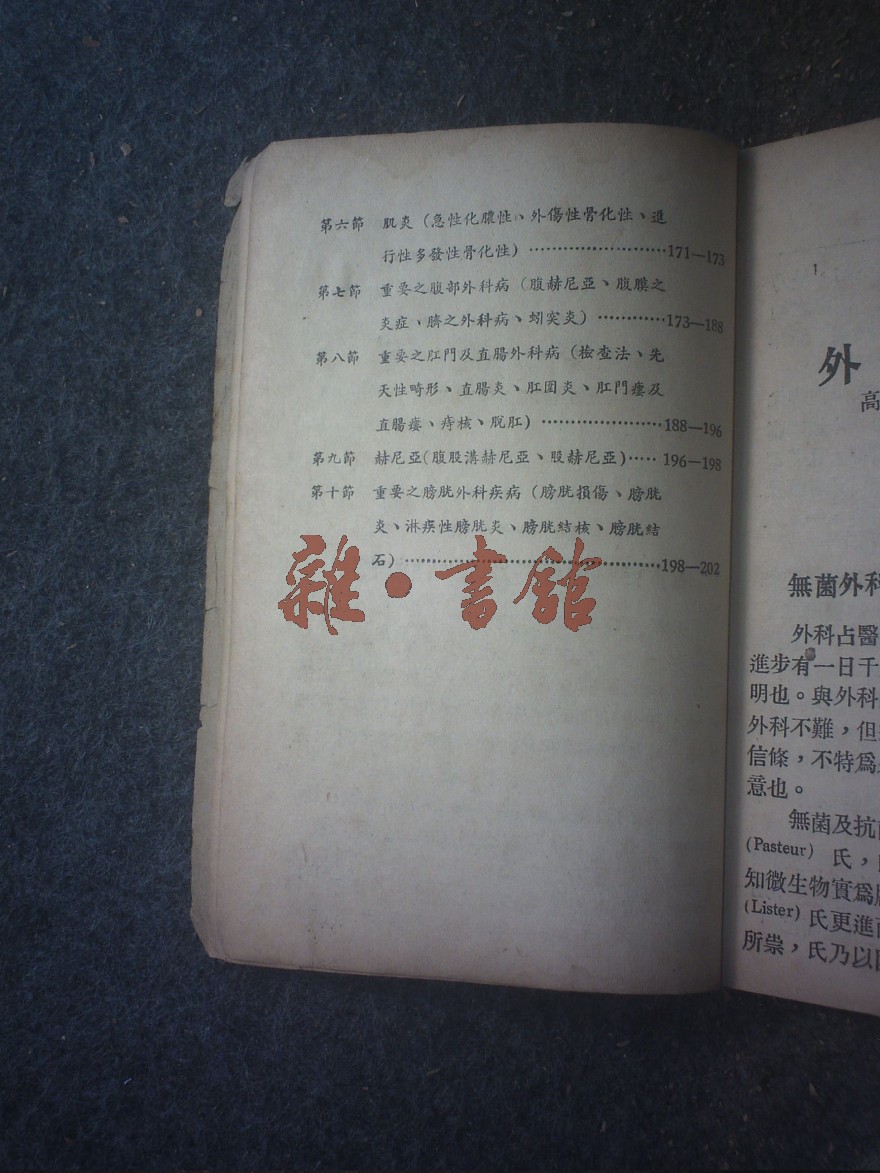 第六節 肌炎（急性化膿性、外傷性骨化性、進
行性多發性骨化性）…………………………171—173
第七節 重要之腹部外科病（腹赫尼亞、腹膜之
炎症、臍之外科病、蚓突炎）…………173—188
第八節 重要之肛門及直腸外科病（檢查法、先
天性畸形、直腸炎、肛圍炎、肛門瘻及
直腸瘻、痔核、脫肛）…………………188—196
第九節 赫尼亞(腹股溝赫尼亞、股赫尼亞)…… 196—198
第十節 重要之膀胱外科疾病（膀胱損傷、膀胱
炎、淋疾性膀胱炎、膀胱結核、膀胱結
石）…………………………………………198—202
雜·書館
1
外
高
無菌外科
外科占醫
進步有一日千
明也。與外科
外科不難，但
信條，不特爲
意也。
無菌及抗
(Pasteur) 氏，
知微生物實爲
(Lister) 氏更進
所祟，氏乃以